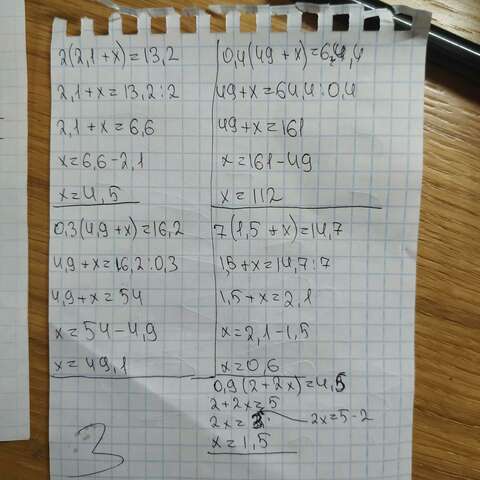 2(2,1+x)=13,2
2,1+x=13,2:2
2,1+x=6,6
x=6,6-2,1
x=4,5
0,3(4,9+x)=16,2
4,9+x=16,2:0,3
4,9+x=54
x=54-4,9
x=49,1
0,4(49+x)=64,4
49+x=64,4:0,4
49+x=161
x=161-49
x=112
7(1,5+x)=14,7
1,5+x=14,7:7
1,5+x=2,1
x=2,1-1,5
x=0,6
0,9(2+2x)=4,5
2+2x=5
2x=5-2
2x=3
x=1,5
3